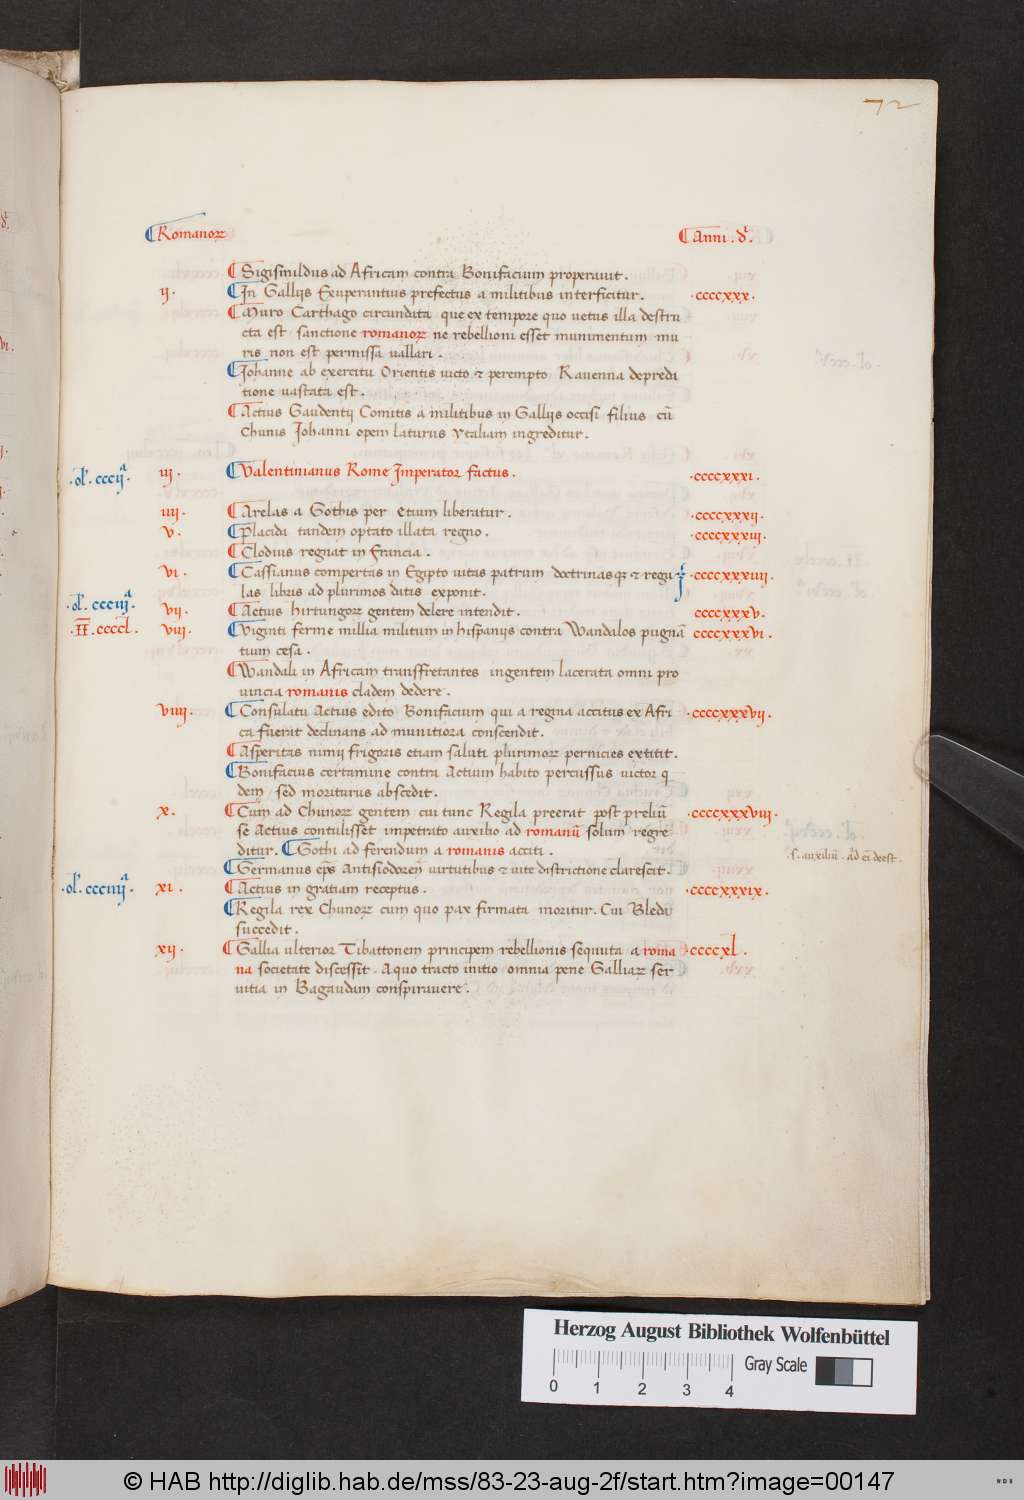 72
Romanoꝝ Anni . d̄ .
Sigisuuldus ad Africam contra Bonifacium properauit .
ij . In Gallijs Exuperantius prefectus a militibus interficitur . .ccccxxx.
Muro Carthago circundita que ex tempore quo uetus illa destru
cta est sanctione romanoꝝ ne rebellioni esset munimentum mu
ris non est permissa uallari .
Johanne ab exercitu Orientis uicto ⁊ perempto Rauenna depredi
tione uastata est .
Actius Gaudentij Comitis a militibus in Gallijs occisi filius cū
Chunis Johanni opem laturus ytaliam ingreditur .
.ol'. cccijᵃ. iij . Valentinianus Rome Imperator factus . .ccccxxxi .
iiij . Arelas a Gothis per etium liberatur . .ccccxxxij .
v . Placidi tandem optato illata regno . .ccccxxxiij .
Clodius regnat in francia .
vi . Cassianus compertas in Egipto uitas patrum doctrinasqꝫ ⁊ regu .ccccxxxiiij .
las libris ad plurimos ditis exponit .
.ol'. ccciijᵃ. vij . Actius hirtungoꝝ gentem delere intendit . ccccxxxv .
.II. ccccl . viij . Viginti ferme millia militum in hispanijs contra Wandalos pugnā ccccxxxvi .
tium cesa .
Wandali in Africam transffretantes ingentem lacerata omni pro
uincia romanis cladem dedere .
viiij . Consulatu Actius edito Bonifacium qui a regina accitus ex Afri .ccccxxxvij .
ca fuerat declinans ad munitiora conscendit .
Asperitas nimij frigoris etiam saluti plurimoꝝ pernicies extitit .
Bonifacius certamine contra Actium habito percussus uictor q
dem sed moriturus abscedit .
x . Cum ad Chunoꝝ gentem cui tunc Regila preerat post preliū .ccccxxxviij .
se Actius contulisset impetrato auxilio ad romanū solum regre
ditur . Gothi ad ferendum a romanis acciti . .s. auxiliū . ad eī deest .
Germanus ep̄s Antisiodoꝝeñ uirtutibus ⁊ uite districtione clarescit .
.ol'. ccciiijᵃ. xi . Actius in gratiam receptus . .ccccxxxix .
Regila rex Chunoꝝ cum quo pax firmata moritur . Cui Bleda
succedit .
xij . Gallia ulterior Tibattonem principem rebellionis sequuta a roma .ccccxl .
na societate discessit . A quo tracto initio omnia pene Galliaꝝ ser
uitia in Bagaudam conspirauere .
Herzog August Bibliothek Wolfenbüttel
Gray Scale
0 1 2 3 4
© HAB http://diglib.hab.de/mss/83-23-aug-2f/start.htm?image=00147